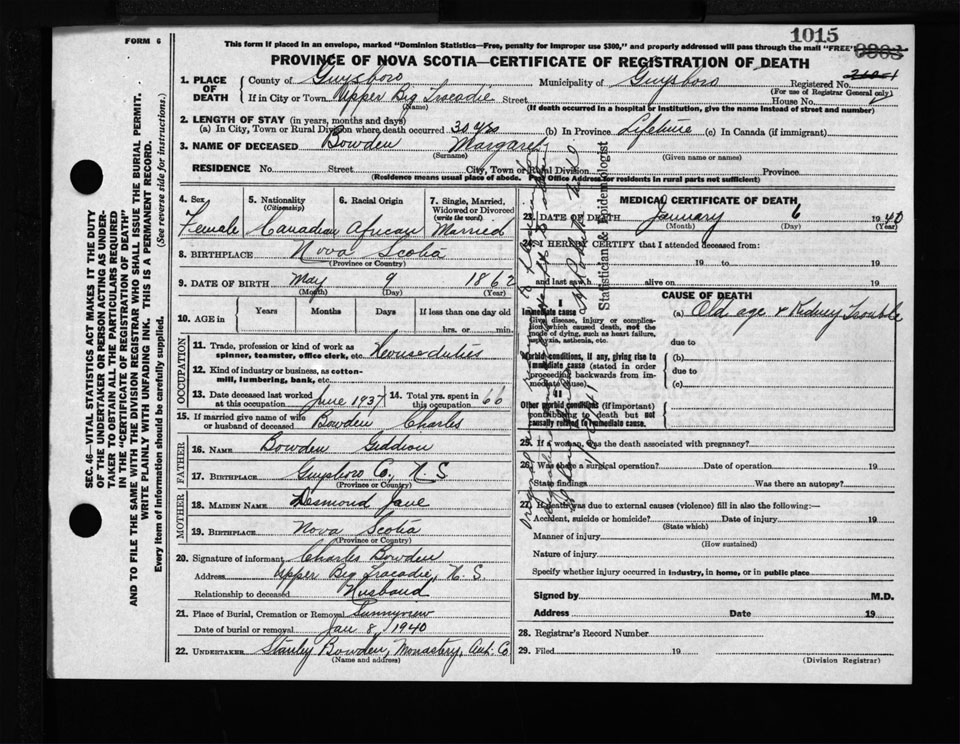 FORM 6
1015
This form if placed in an envelope, marked "Dominion Statistics—Free, penalty for improper use $300," and properly addressed will pass through the mail "FREE"
PROVINCE OF NOVA SCOTIA—CERTIFICATE OF REGISTRATION OF DEATH
1. PLACE OF DEATH County of Guysboro Municipality of Guysboro Registered No.
(For use of Registrar General only)
If in City or Town Upper Big Tracadie Street House No.
(Name) (If death occurred in a hospital or institution, give the name instead of street and number)
2. LENGTH OF STAY (in years, months and days)
(a) In City, Town or Rural Division where death occurred 30 yrs (b) In Province Lifetime (c) In Canada (if immigrant)
3. NAME OF DECEASED Bowden Margaret
(Surname) (Given name or names)
RESIDENCE No. Street City, Town or Rural Division Province
(Residence means usual place of abode. Post Office Address for residents in rural parts not sufficient)
4. Sex 5. Nationality (Citizenship) 6. Racial Origin 7. Single, Married, Widowed or Divorced (write the word)
Female Canadian African Married
8. BIRTHPLACE Nova Scotia
(Province or Country)
9. DATE OF BIRTH May 9 1862
(Month) (Day) (Year)
10. AGE in Years Months Days If less than one day old
hrs. or min.
OCCUPATION
11. Trade, profession or kind of work as spinner, teamster, office clerk, etc. Houseduties
12. Kind of industry or business, as cotton-mill, lumbering, bank, etc.
13. Date deceased last worked at this occupation June 1937 14. Total yrs. spent in this occupation 60
15. If married give name of wife or husband of deceased Bowden Charles
FATHER
16. NAME Bowden Geddion
17. BIRTHPLACE Guysboro Co., N.S
(Province or Country)
MOTHER
18. MAIDEN NAME Desmond Jane
19. BIRTHPLACE Nova Scotia
(Province or Country)
20. Signature of informant Charles Bowden
Address Upper Big Tracadie, N.S
Relationship to deceased Husband
21. Place of Burial, Cremation or Removal Sunnyview
Date of burial or removal Jan 8, 1940
22. UNDERTAKER Stanley Bowden, Monastery, Ant. Co
(Name and address)
MEDICAL CERTIFICATE OF DEATH
23. DATE OF DEATH January 6 1940
(Month) (Day) (Year)
24. I HEREBY CERTIFY that I attended deceased from:
19 to 19
and last saw h alive on 19
CAUSE OF DEATH
I
Immediate cause
Give disease, injury or complication which caused death, not the mode of dying, such as heart failure, asphyxia, asthenia, etc.
(a) Old age & Kidney Trouble
due to
Morbid conditions, if any, giving rise to immediate cause (stated in order proceeding backwards from immediate cause).
(b)
due to
(c)
II
Other morbid conditions (if important) contributing to death but not causally related to immediate cause.
25. If a woman, was the death associated with pregnancy?
26. Was there a surgical operation? Date of operation 19
State findings Was there an autopsy?
27. If death was due to external causes (violence) fill in also the following:—
Accident, suicide or homicide? Date of injury 19
(State which)
Manner of injury
(How sustained)
Nature of injury
Specify whether injury occurred in industry, in home, or in public place
Signed by M.D.
Address Date 19
28. Registrar's Record Number
29. Filed 19
(Division Registrar)
Statistician & Epidemiologist
SEC. 46—VITAL STATISTICS ACT MAKES IT THE DUTY
OF THE UNDERTAKER OR PERSON ACTING AS UNDER-
TAKER TO OBTAIN ALL THE PARTICULARS REQUIRED
IN THE "CERTIFICATE OF REGISTRATION OF DEATH"
AND TO FILE THE SAME WITH THE DIVISION REGISTRAR WHO SHALL ISSUE THE BURIAL PERMIT.
WRITE PLAINLY WITH UNFADING INK. THIS IS A PERMANENT RECORD.
Every item of information should be carefully supplied. (See reverse side for instructions.)